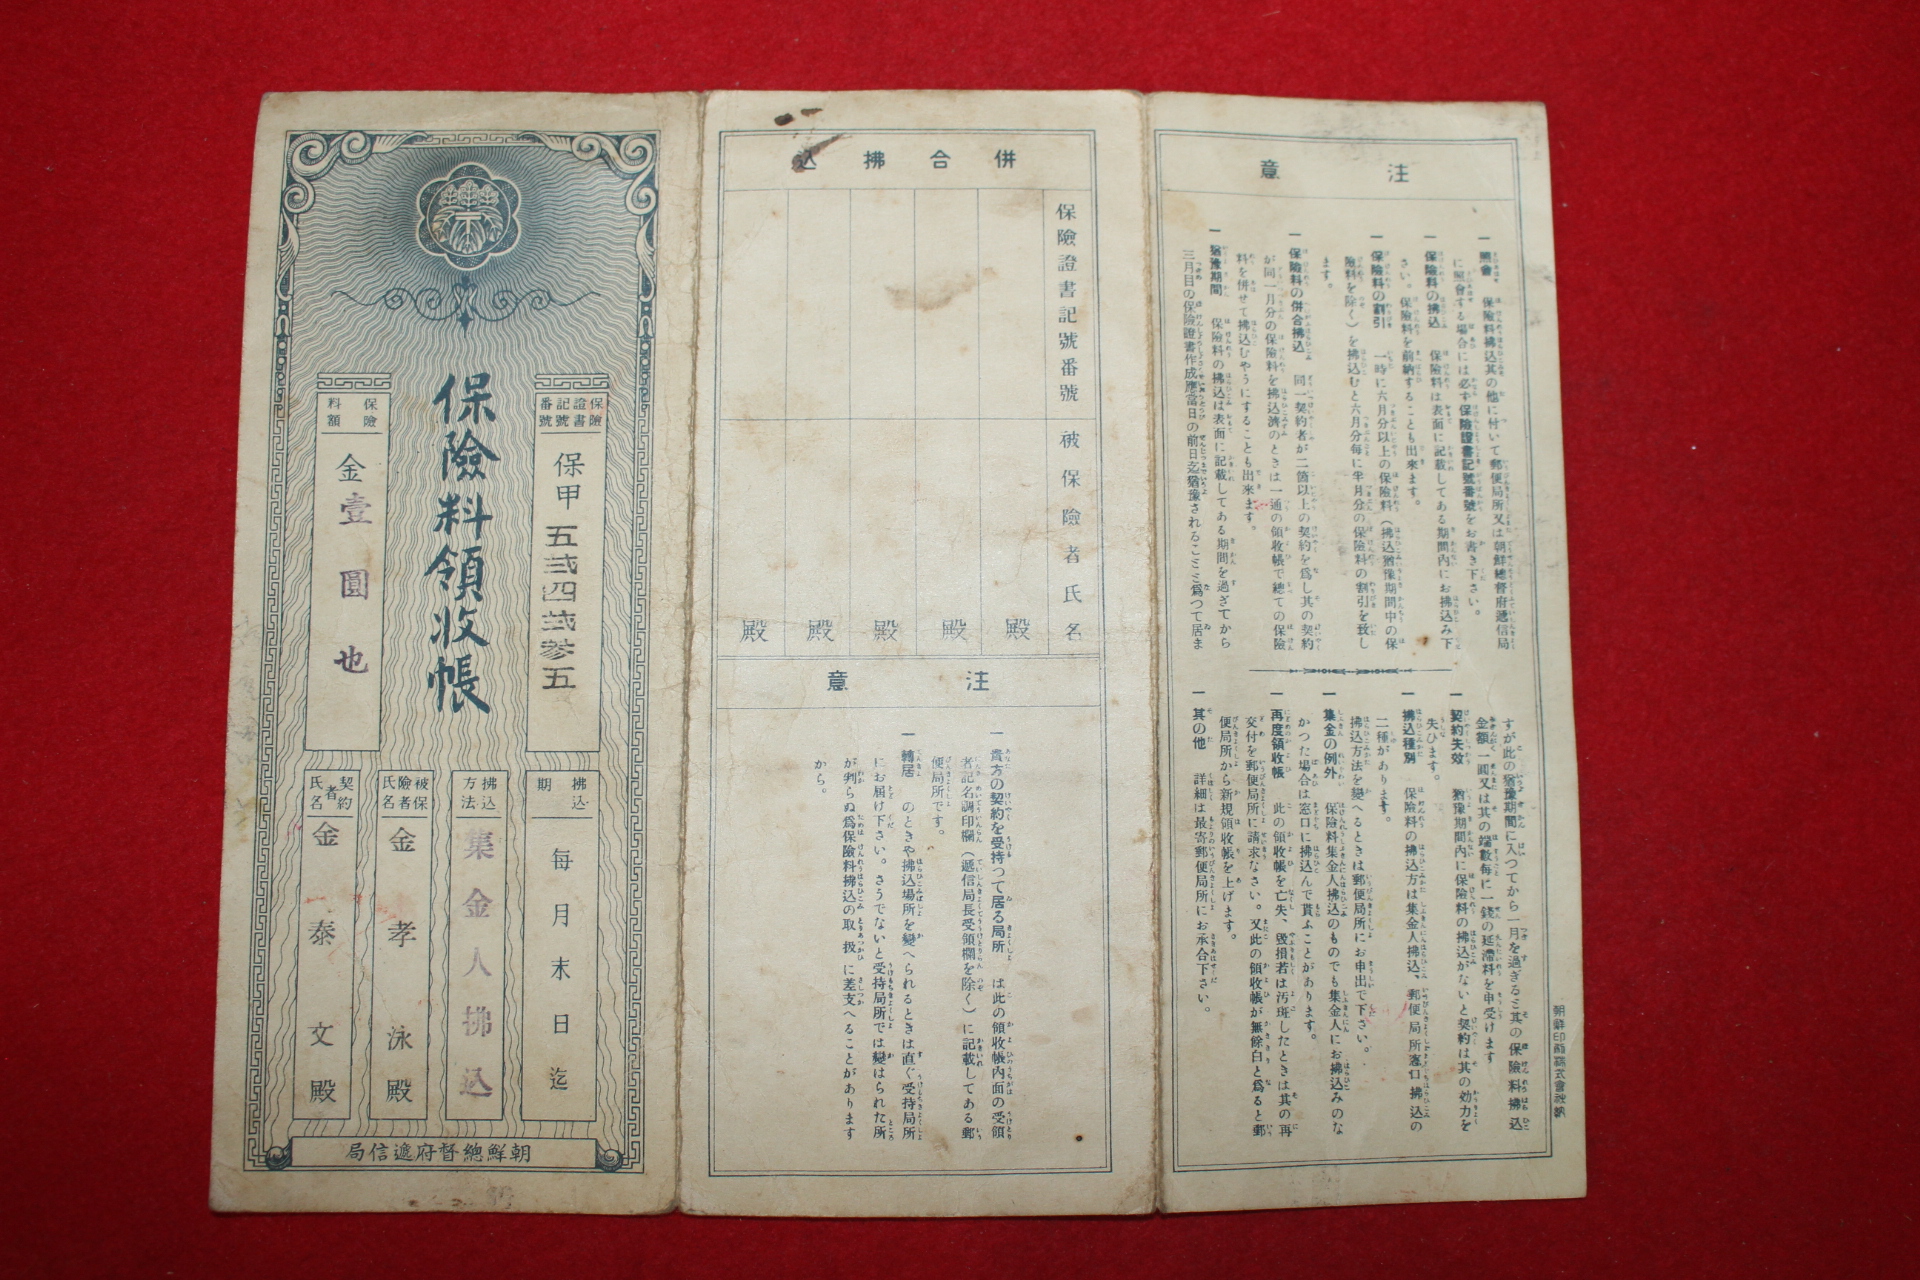 保險料領收帳
保險證書記號番號
保甲 五弍四弍參五
保險料額
金壹圓也
拂込期
每月末日迄
拂込方法
集金人拂込
被保險者氏名
金孝泳殿
契約者氏名
金泰文殿
朝鮮總督府遞信局
併合拂込
保險證書記號番號
被保險者氏名
殿
殿
殿
殿
殿
注意
一 貴方の契約を受持つて居る局所 は此の領收帳內面の受領
者記名調印欄(遞信局長受領欄を除く)に記載してある郵
便局所です。
一 轉居 のときや拂込場所を變へられるときは直ぐ受持局所
にお屆け下さい。さうでないと受持局所では變はられた所
が判らぬ爲保險料拂込の取扱に差支へることがあります
から。
注意
一 照會 保險料拂込其の他に付いて郵便局所又は朝鮮總督府遞信局
に照會する場合には必ず保險證書記號番號をお書き下さい。
一 保險料の拂込 保險料は表面に記載してある期間內にお拂込み下
さい。保險料を前納することも出來ます。
一 保險料の割引 一時に六月分以上の保險料(拂込猶豫期間中の保
險料を除く)を拂込むと六月分每に半月分の保險料の割引を致し
ます。
一 保險料の併合拂込 同一契約者が二箇以上の契約を爲し其の契約
が同一月分の保險料を拂込濟のときは一通の領收帳で總ての保險
料を併せて拂込むやうにすることも出來ます。
一 猶豫期間 保險料の拂込は表面に記載してある期間を過ぎてから
三月目の保險證書作成應當日の前日迄猶豫されることと爲つて居ま
すが此の猶豫期間に入つてから一月を過ぎると其の保險料拂込
金額一圓又は其の端數每に一錢の延滯料を申受けます
一 契約失效 猶豫期間內に保險料の拂込がないと契約は其の効力を
失ひます。
一 拂込種別 保險料の拂込方は集金人拂込、郵便局所窓口拂込の
二種があります。
拂込方法を變へるときは郵便局所にお申出で下さい。
一 集金の例外 保險料集金人拂込のものでも集金人にお拂込みのな
かつた場合は窓口に拂込んで貰ふことがあります。
一 再度領收帳 此の領收帳を亡失、毀損若は汚斑したときは其の再
交付を郵便局所に請求なさい。又此の領收帳が無餘白と爲ると郵
便局所から新規領收帳を上げます。
一 其の他 詳細は最寄郵便局所にお承合下さい。
朝鮮印刷株式會社納